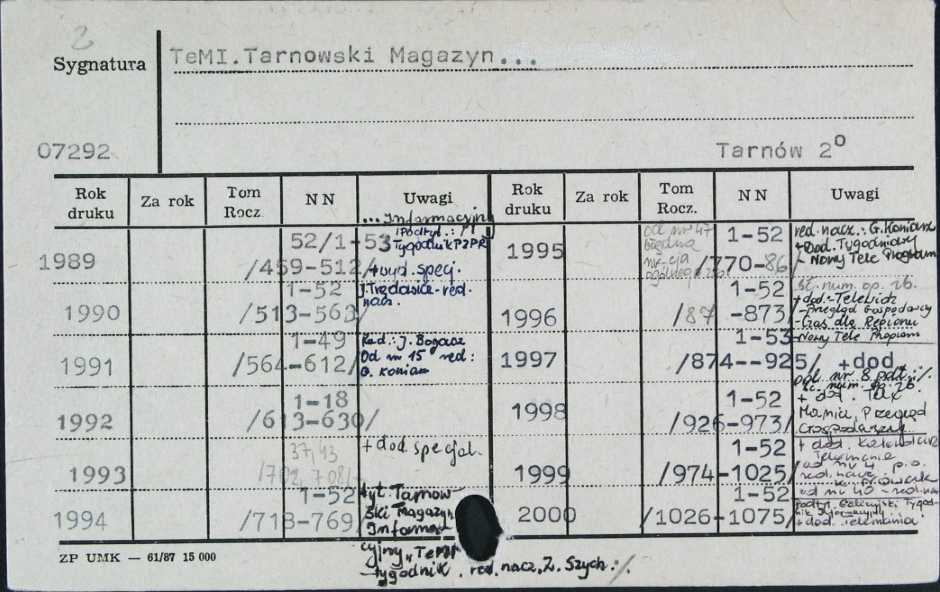 2
Sygnatura
TeMI.Tarnowski Magazyn...
07292
Tarnów 2º
Rok druku
Za rok
Tom Rocz.
N N
Uwagi
Rok druku
Za rok
Tom Rocz.
N N
Uwagi
...Informacyjny
1989
52/1-53
/459-512/
Podtyt.:
Tygodnik PZPR
+wyd. specj.
1990
1-52
/513-563/
red. nacz.
1991
1-49
/564-612/
Red.: J. Bogacz
Od nr 15 red:
G. Koniarz
1992
1-18
/613-630/
1993
37,43
+ dod specjal.
1994
1-52
/718-769/
tyt. Tarnow
ski Magazyn
Informa
cyjny "TeMI"
- tygodnik. red. nacz. Z. Szych ·/.
1995
od nr 47
błędna
1-52
/770-86/
red. nacz.: G. Koniarz
+ Dod. Tygodniowy
- Nowy Tele Program
1996
1-52
/87 -873/
+ dod.-
- Przegląd Gospodarczy
Nowy Tele Program
1997
1-53
/874--925/ +dod
od nr 8 podt.: ·/.
1998
1-52
/926-973/
+ dod. Tele
Mania, Przegląd
Gospodarczy
1999
1-52
/974-1025/
+ dod. Kalendarz
Telemania
od nr 4 p.o.
red. nacz.
od nr 40 - red. nacz
2000
1-52
/1026-1075/
+ dod. Telemania
ZP UMK — 61/87 15 000